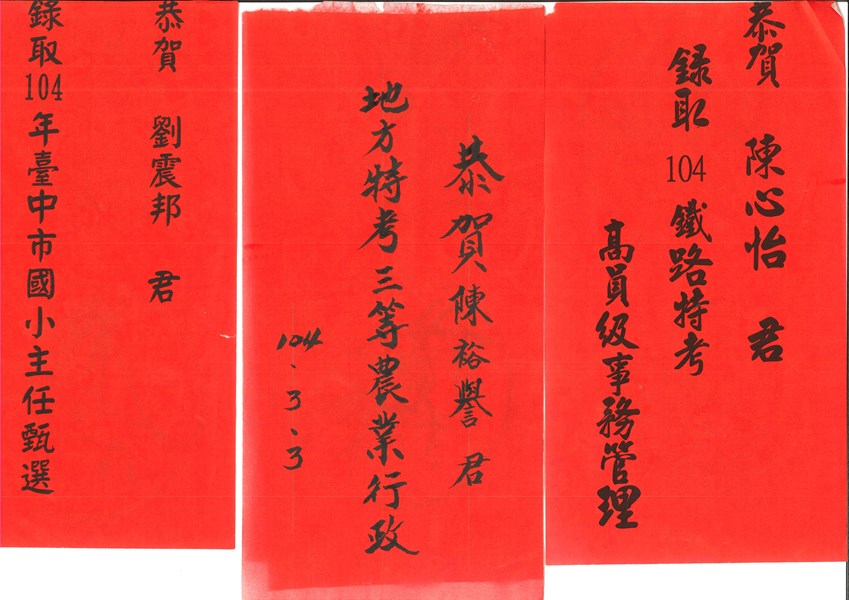 恭賀 陳心怡 君
錄取 104 鐵路特考
高員級事務管理
恭賀陳裕譽 君
地方特考三等農業行政
104、3、3
恭賀 劉震邦 君
錄取104年臺中市國小主任甄選